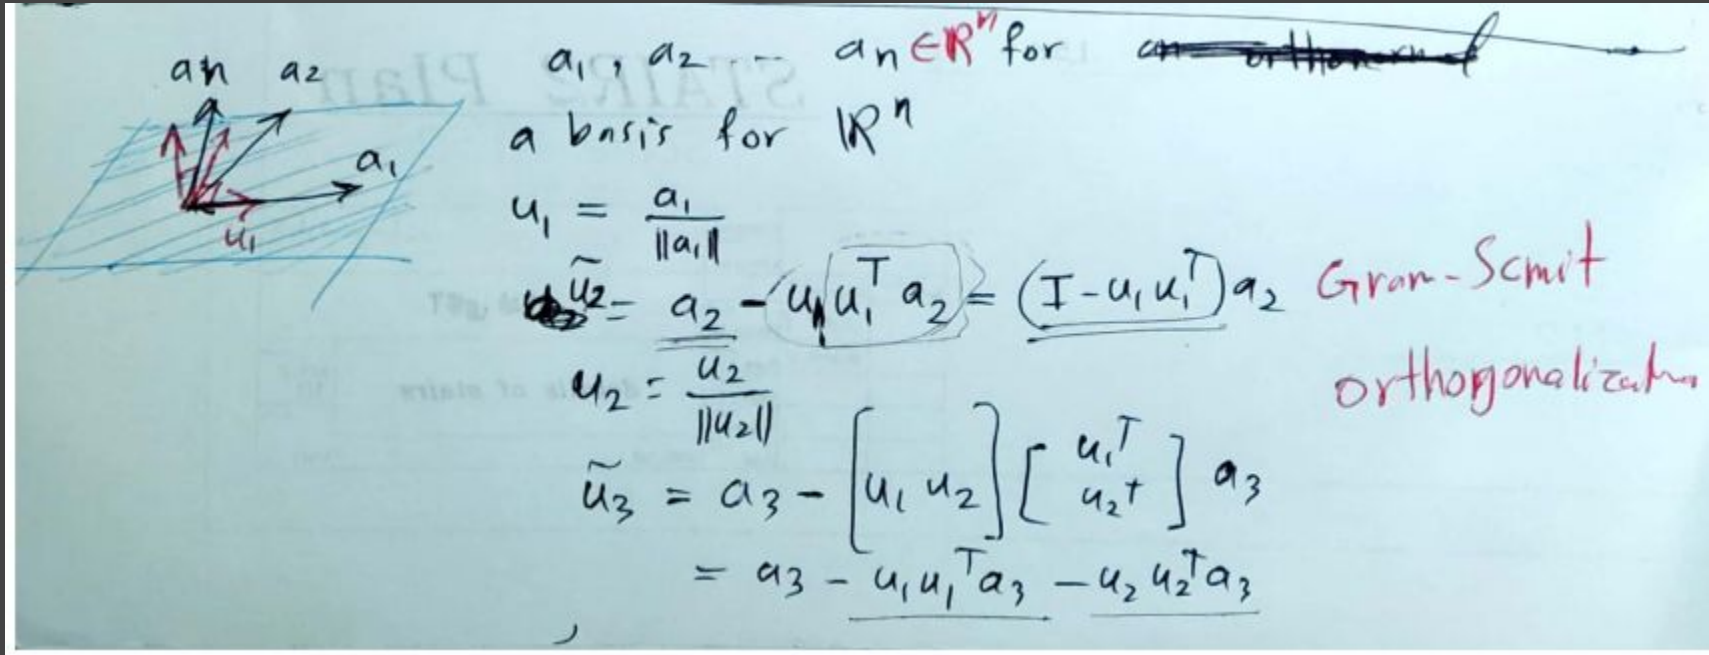 an a2
a1
u1
a1, a2 ... an ∈ℝⁿ for
a basis for ℝⁿ
u1 = a1 / ||a1||
ũ2 = a2 - u1 u1ᵀ a2 = (I - u1 u1ᵀ) a2
Gram-Scmit
orthogonalization
u2 = u2 / ||u2||
ũ3 = a3 - [u1 u2] [u1ᵀ u2ᵀ] a3
= a3 - u1 u1ᵀ a3 - u2 u2ᵀ a3
STAIR2 Plan